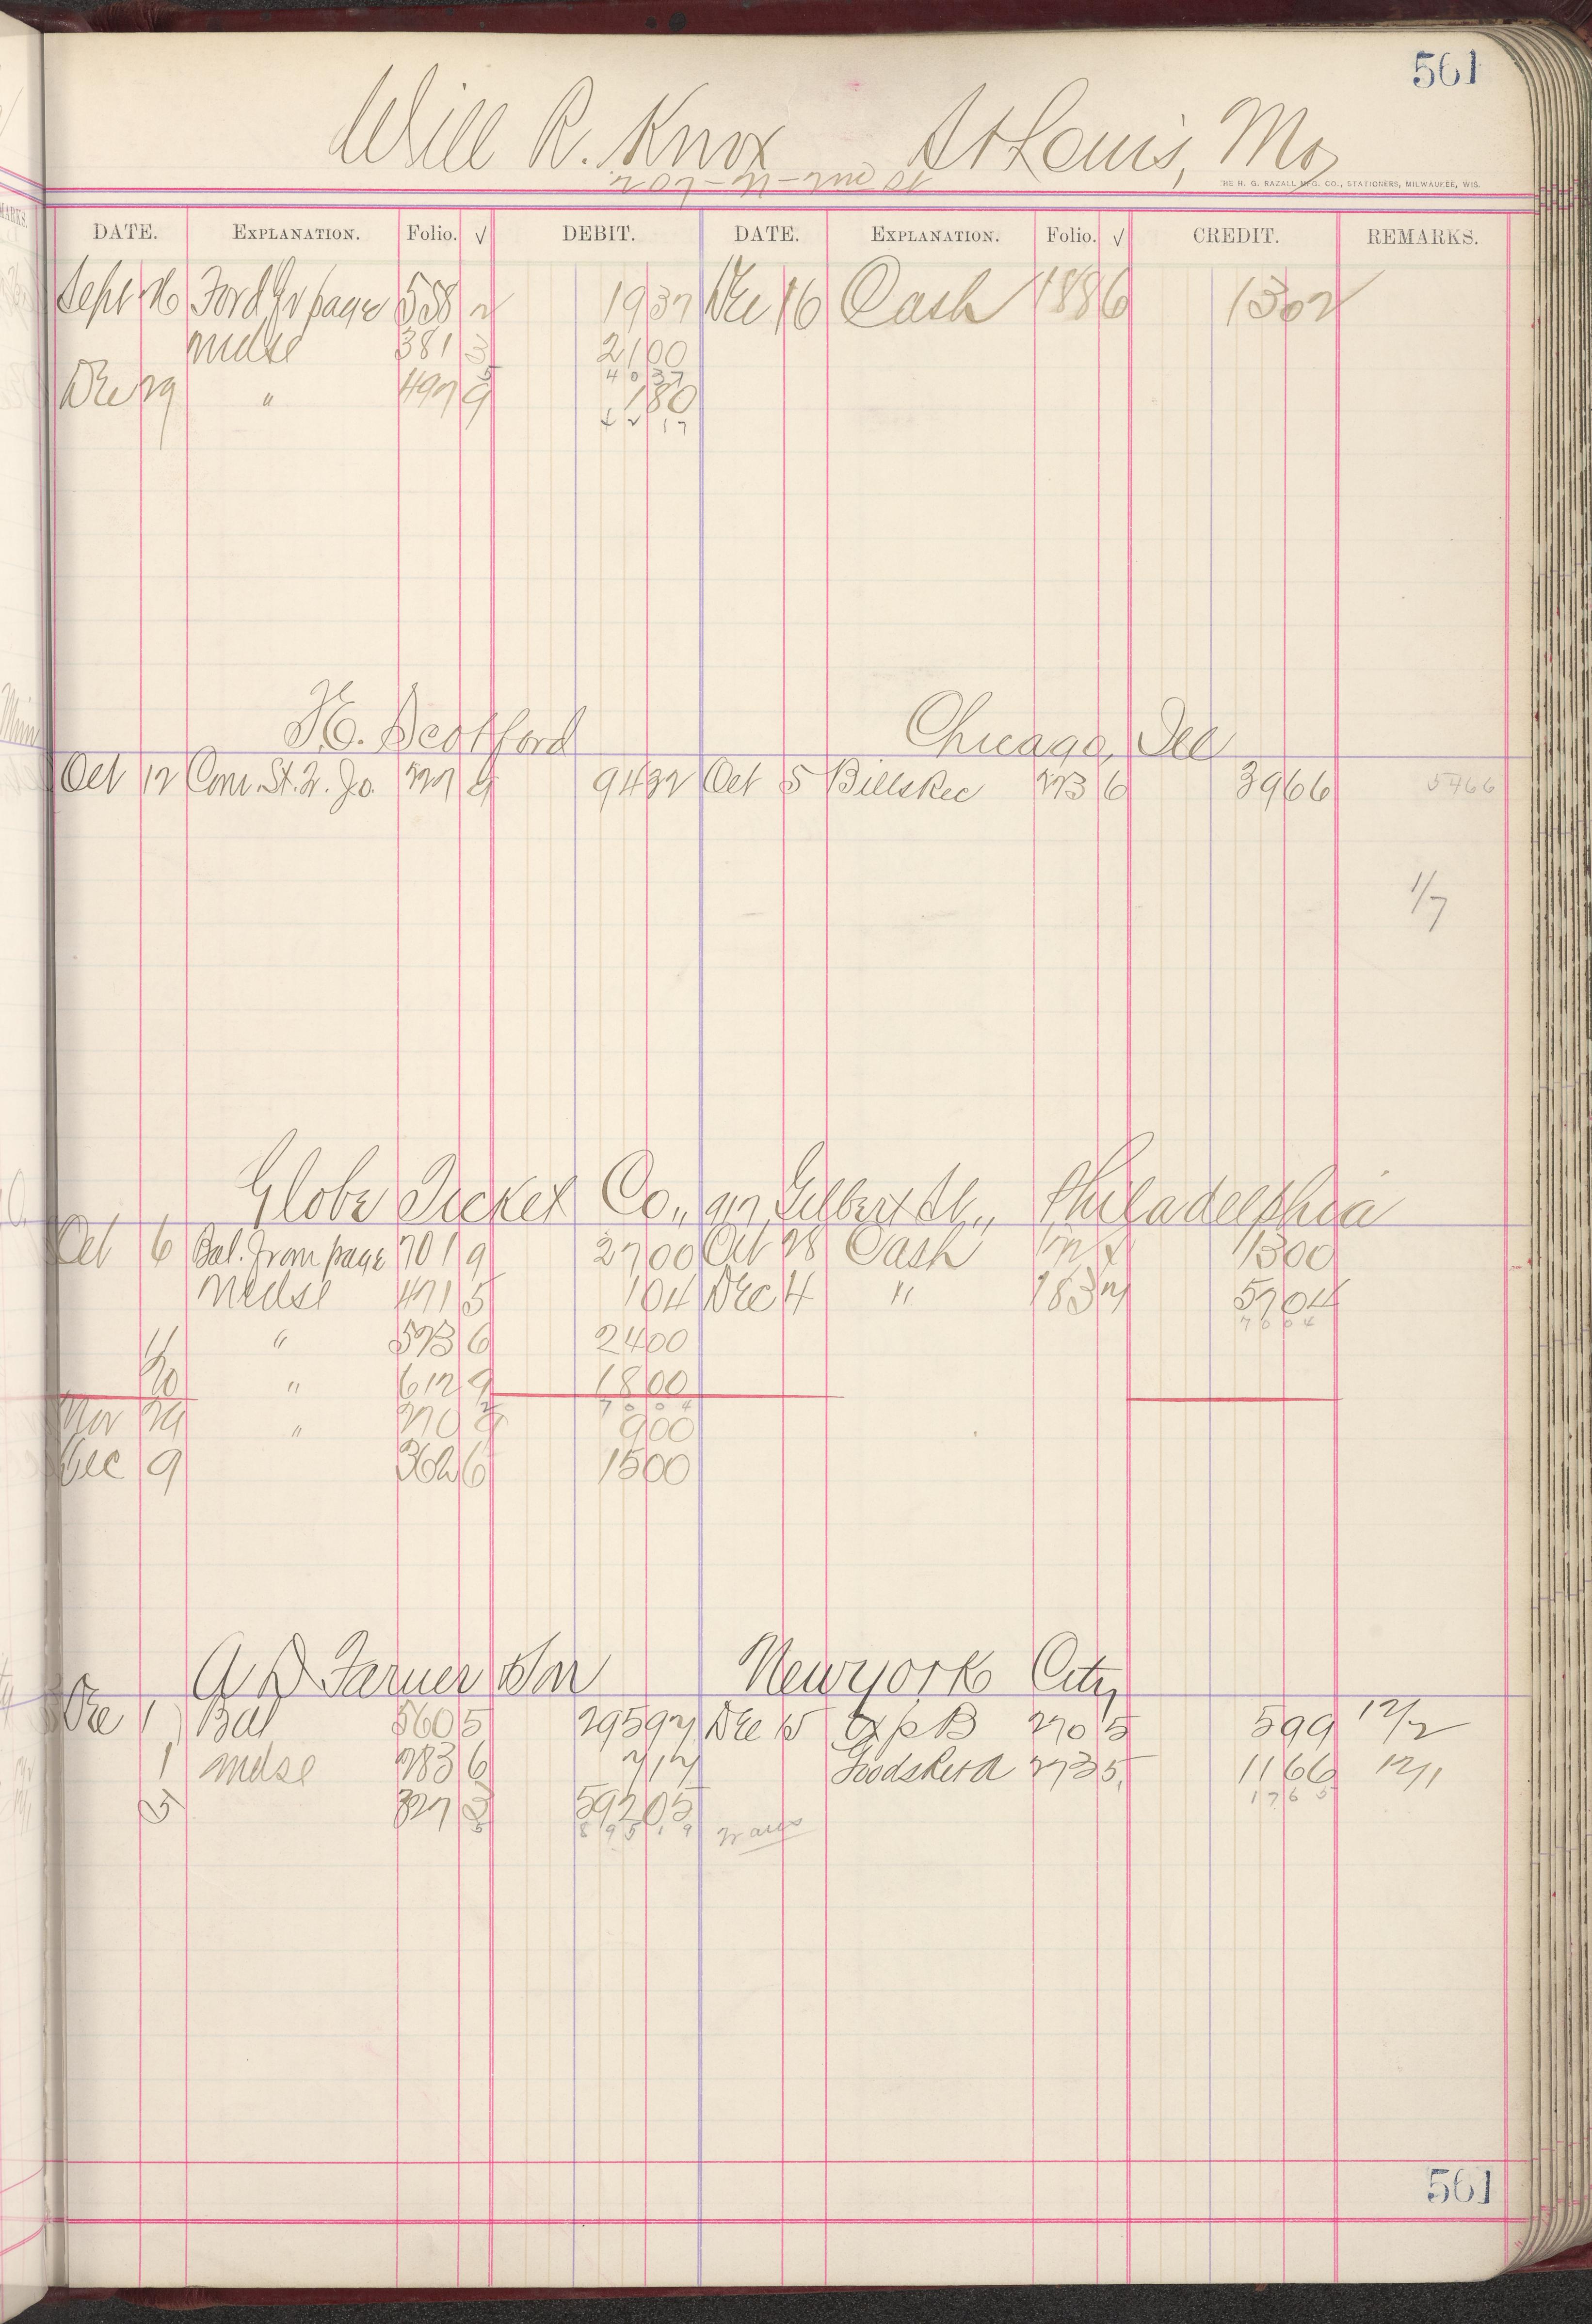 561
Will R. Knox St Louis, Mo
THE H. G. RAZALL MFG. CO., STATIONERS, MILWAUKEE, WIS.
DATE. EXPLANATION. Folio. √ DEBIT. DATE. EXPLANATION. Folio. √ CREDIT. REMARKS.
Sept 26 Ford Fr page 558 2 1937 Dec 16 Cash 188 6 1302
Mdse 381 3 2100
4037
Dec 29 " 497 9 180
4217
H. Scotford Chicago, Ill
Oct 12 Com. St. L. Jo. 527 9 9432 Oct 5 Bills Rec 273 6 3966 5466
1/7
Globe Ticket Co., 917 Filbert St., Philadelphia
Oct 6 Bal. from page 701 9 2700 Oct 28 Cash 1300
Mdse 471 5 104 Dec 4 " 183 7 5704
7004
" 573 6 2400
20 " 612 9 1800
7004
Nov 29 " 270 900
Dec 9 362 6 1500
A D Farmer & Son New York City
Dec 1 Bal 560 5 29597 Dec 15 Exp B 270 5 599 12/2
1 Mdse 283 6 717 Goods Retd 273 5 1166 12/1
1765
5 327 3 59205
89519 Trans
561